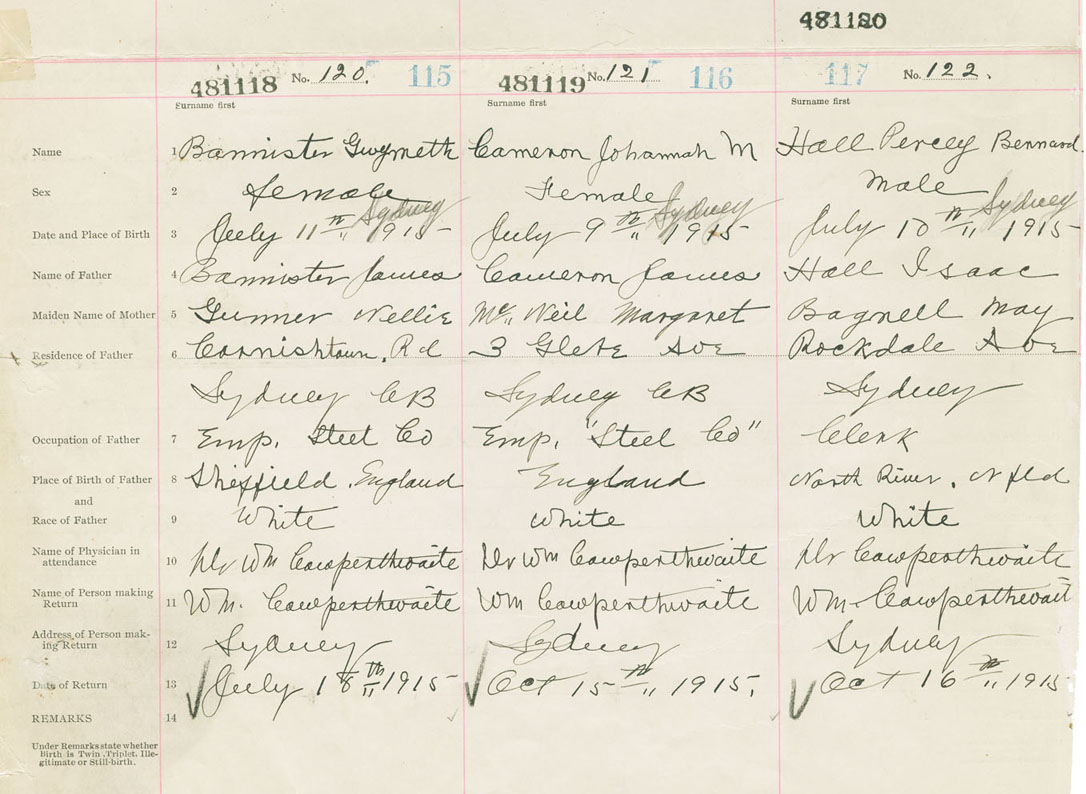 481120
481118 No. 120. 115 481119 No. 121 116 117 No. 122.
Surname first Surname first Surname first
Name 1 Bannister Gwyneth Cameron Johannah M Hall Percey Bernard.
Sex 2 female Female Male
Sydney Sydney Sydney
Date and Place of Birth 3 July 11th 1915 July 9th 1915 July 10th 1915
Name of Father 4 Bannister James Cameron James Hall Isaac
Maiden Name of Mother 5 Gunner Nellie Mc Neil Margaret Bagnell May
Residence of Father 6 Cornishtown, Rd 3 Glebe Ave Rockdale Ave
Sydney CB Sydney CB Sydney
Occupation of Father 7 Emp. Steel Co Emp. "Steel Co" Clerk
Place of Birth of Father 8 Sheffield. England England North River. Nfld
and
Race of Father 9 White White White
Name of Physician in
attendance 10 Dr Wm Cowperthwaite Dr Wm Cowperthwaite Dr Cowperthwaite
Name of Person making
Return 11 Wm. Cowperthwaite Wm Cowperthwaite Wm. Cowperthwait
Address of Person mak-
ing Return 12 Sydney Sydney Sydney
Date of Return 13 July 18th 1915 Oct 15th 1915. Oct 16th 1915
REMARKS 14
Under Remarks state whether
Birth is Twin, Triplet, Ille-
gitimate or Still-birth.